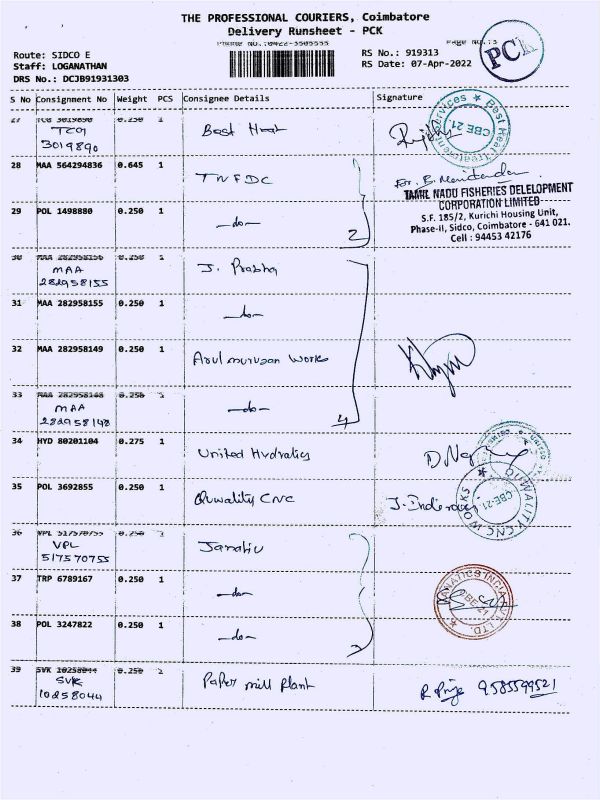 THE PROFESSIONAL COURIERS, Coimbatore
Delivery Runsheet - PCK
PCK
Route: SIDCO E
Staff: LOGANATHAN
DRS No.: DCJB91931303
RS No.: 919313
RS Date: 07-Apr-2022
S No Consignment No Weight PCS Consignee Details Signature
27 TCG 3019890 0.250 1 Best Heat
TCG
3019890
Best Heat Treatment Services
CBE 21.
28 MAA 564294836 0.645 1 TNFDC
TAMIL NADU FISHERIES DELELOPMENT
CORPORATION LIMITED
S.F. 185/2, Kurichi Housing Unit,
Phase-II, Sidco, Coimbatore - 641 021.
Cell : 94453 42176
29 POL 1498880 0.250 1 -do-
2
30 0.250 1 J. Prabha
MAA
282958155
31 MAA 282958155 0.250 1 -do-
32 MAA 282958149 0.250 1 Arulmurugan Works
33 MAA 282958148 0.250 1 -do-
MAA
282958148
4
34 HYD 80201104 0.275 1 United Hydralics
35 POL 3692855 0.250 1 Quwality CNC
QUWALITY CNC WORKS
CBE-21
36 VPL 517570755 0.250 1
VPL
517570755
37 TRP 6789167 0.250 1 -do-
38 POL 3247822 0.250 1 -do-
39 SVK 10258044 0.250 1 Paper mill Plant
SVK
10258044
9585599521